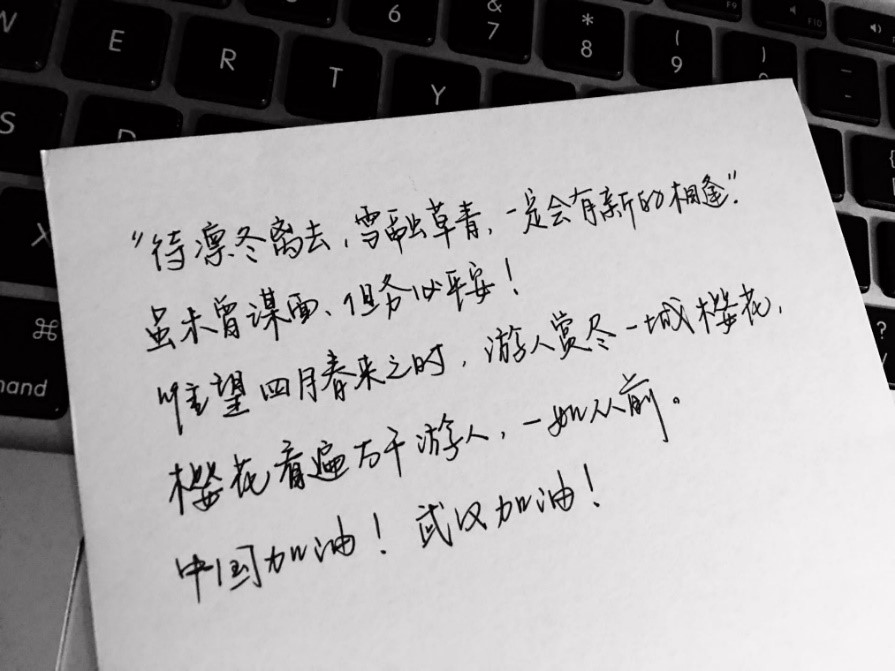 W E R T Y 6 & 7 * 8 ( 9 ) F9 F10
S
X
⌘
mand
?
"待凛冬离去,雪融草青,一定会有新的相逢".
虽未曾谋面、但务必平安!
唯望四月春来之时,游人赏尽一城樱花,
樱花看遍万千游人,一如从前。
中国加油!武汉加油!